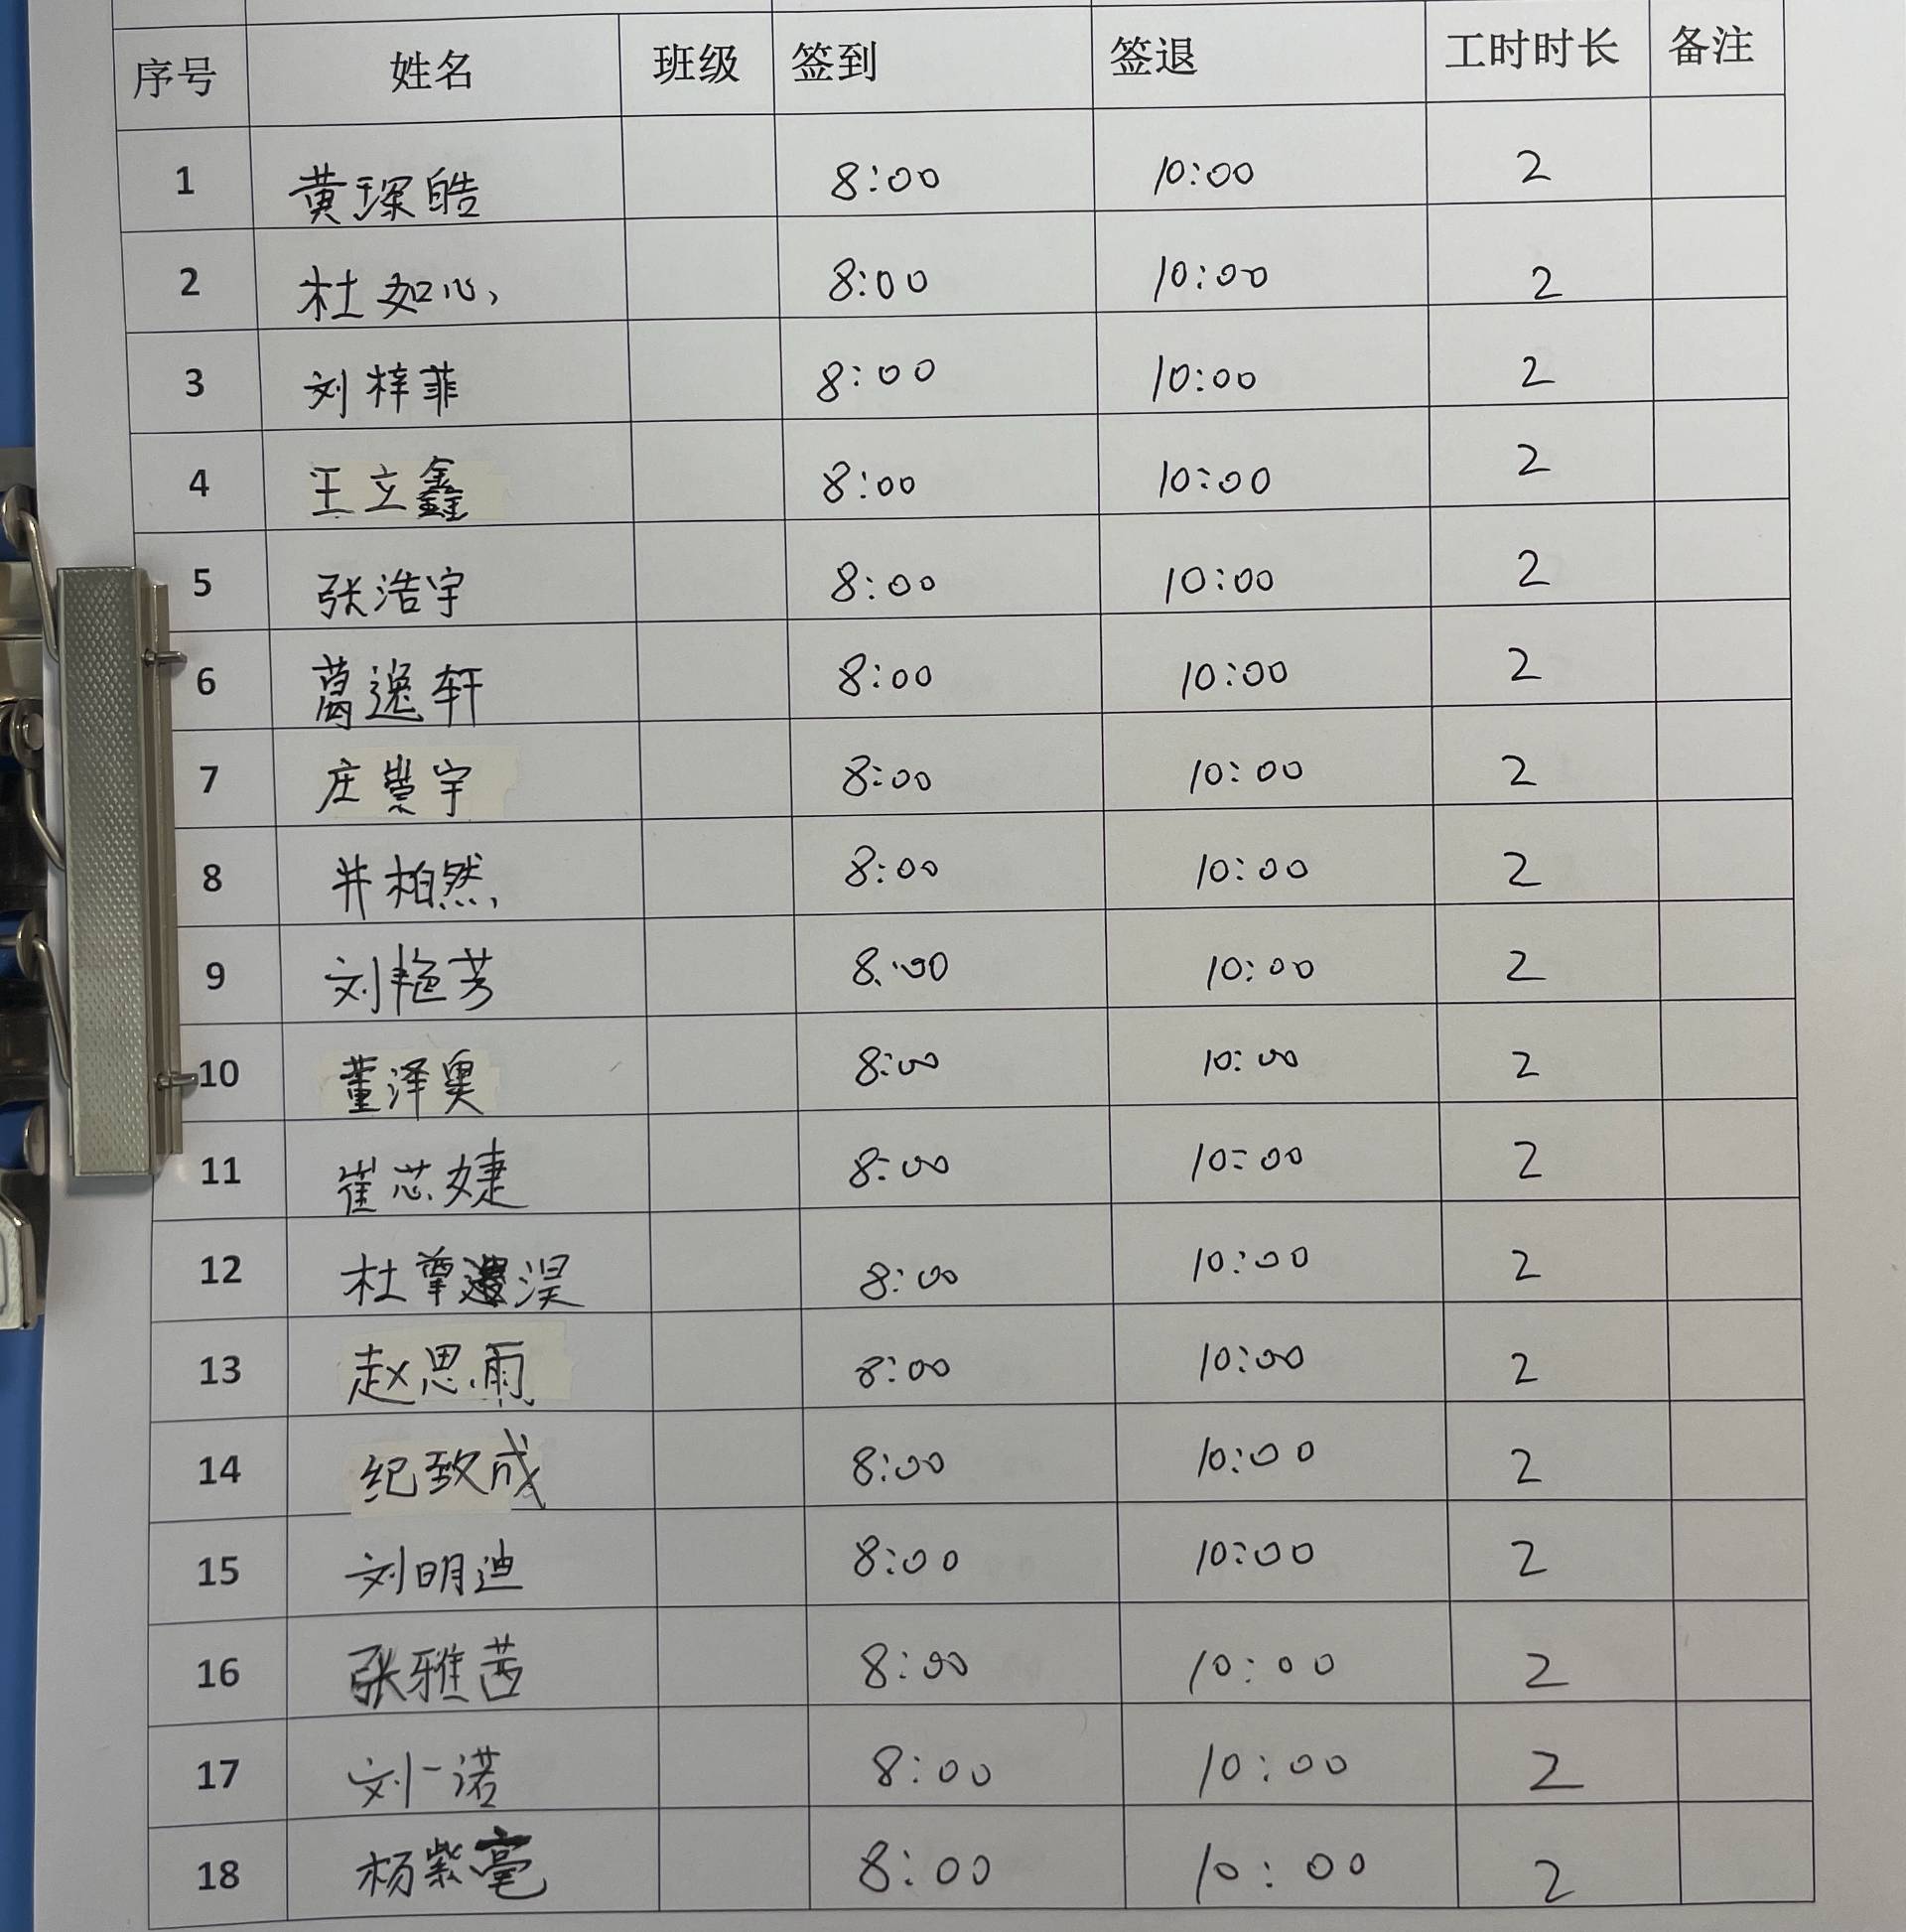 序号 姓名 班级 签到 签退 工时时长 备注
1 黄琛皓 8:00 10:00 2
2 杜如心 8:00 10:00 2
3 刘梓菲 8:00 10:00 2
4 王立鑫 8:00 10:00 2
5 张浩宇 8:00 10:00 2
6 葛逸轩 8:00 10:00 2
7 庄崇宇 8:00 10:00 2
8 井柏然 8:00 10:00 2
9 刘艳芳 8:00 10:00 2
10 董泽奥 8:00 10:00 2
11 崔芯婕 8:00 10:00 2
12 杜 8:00 10:00 2
13 赵思雨 8:00 10:00 2
14 纪致成 8:00 10:00 2
15 刘明迪 8:00 10:00 2
16 张雅茜 8:00 10:00 2
17 刘一诺 8:00 10:00 2
18 杨紫毫 8:00 10:00 2